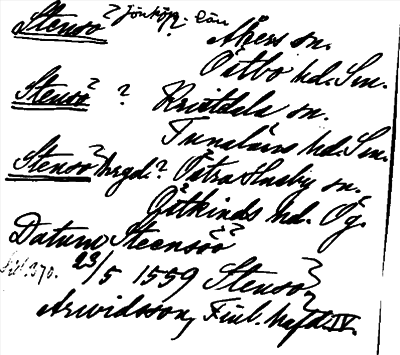 Stensö? Jönköp. län
Åkers sn.
Östbo hd. Sm.
Stensö? ? Kristdala sn.
Tunaläns hd. Sm.
Stensö? hrgd.? Östra Husby sn.
Östkinds hd. Ög.
Datum Steensöö??
23/5 1559 Stensö?
Arwidsson, Finl. häfd. IV.